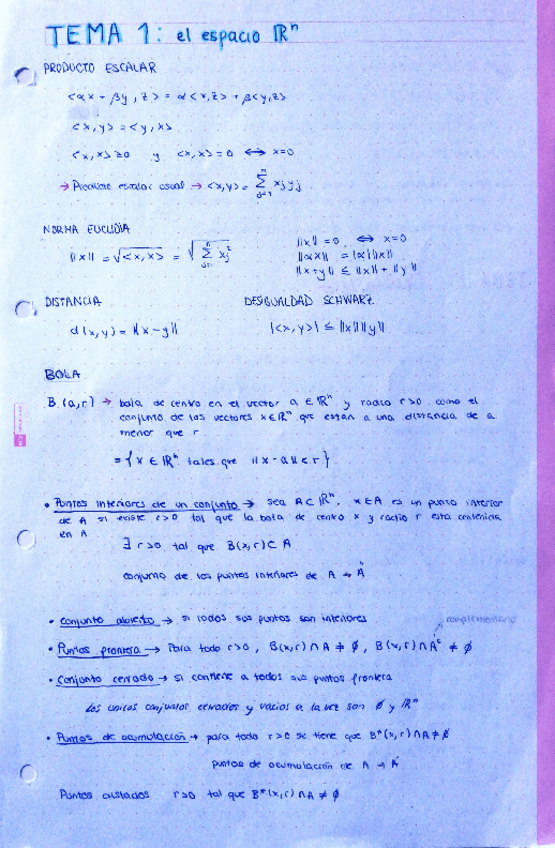 TEMA 1: el espacio ℝⁿ
PRODUCTO ESCALAR
<αx + βy, z> = α<x,z> + β<y,z>
<x,y> = <y,x>
<x,x> ≥ 0 y <x,x> = 0 ⟺ x=0
→ Producto escalar usual → <x,y> = Σⁿⱼ₌₁ xⱼyⱼ
NORMA EUCLIDIA
||x|| = √<x,x> = √Σⁿⱼ₌₁ xⱼ²
||x|| = 0 ⟺ x=0
||αx|| = |α| ||x||
||x+y|| ≤ ||x|| + ||y||
DISTANCIA
d(x,y) = ||x-y||
DESIGUALDAD SCHWARZ
|<x,y>| ≤ ||x|| ||y||
BOLA
B(a,r) → bola de centro en el vector a ∈ ℝⁿ y radio r>0 como el
conjunto de los vectores x∈ℝⁿ que están a una distancia de a
menor que r
= {x ∈ ℝⁿ tales que ||x-a|| < r}
• Puntos interiores de un conjunto → sea A⊂ℝⁿ. x∈A es un punto interior
de A si existe r>0 tal que la bola de centro x y radio r está contenida
en A
∃ r>0 tal que B(x,r) ⊂ A
conjunto de los puntos interiores de A → Å
• Conjunto abierto → si todos sus puntos son interiores
complementario
• Puntos frontera → Para todo r>0, B(x,r) ∩ A ≠ ∅, B(x,r) ∩ Aᶜ ≠ ∅
• Conjunto cerrado → si contiene a todos sus puntos frontera
Los únicos conjuntos cerrados y vacios a la vez son ∅ y ℝⁿ
• Puntos de acumulación → para todo r>0 se tiene que B*(x,r) ∩ A ≠ ∅
puntos de acumulación de A → A'
Puntos aislados r>0 tal que B*(x,r) ∩ A ≠ ∅